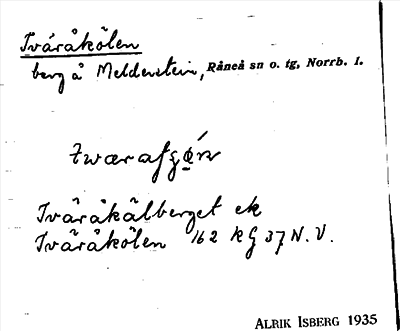 Tväråkölen
berg å Meldenstein, Råneå sn o. tg, Norrb. l.
Tväråkälberget ek
Tväråkölen 162 kg 37 N.V.
ALRIK ISBERG 1935